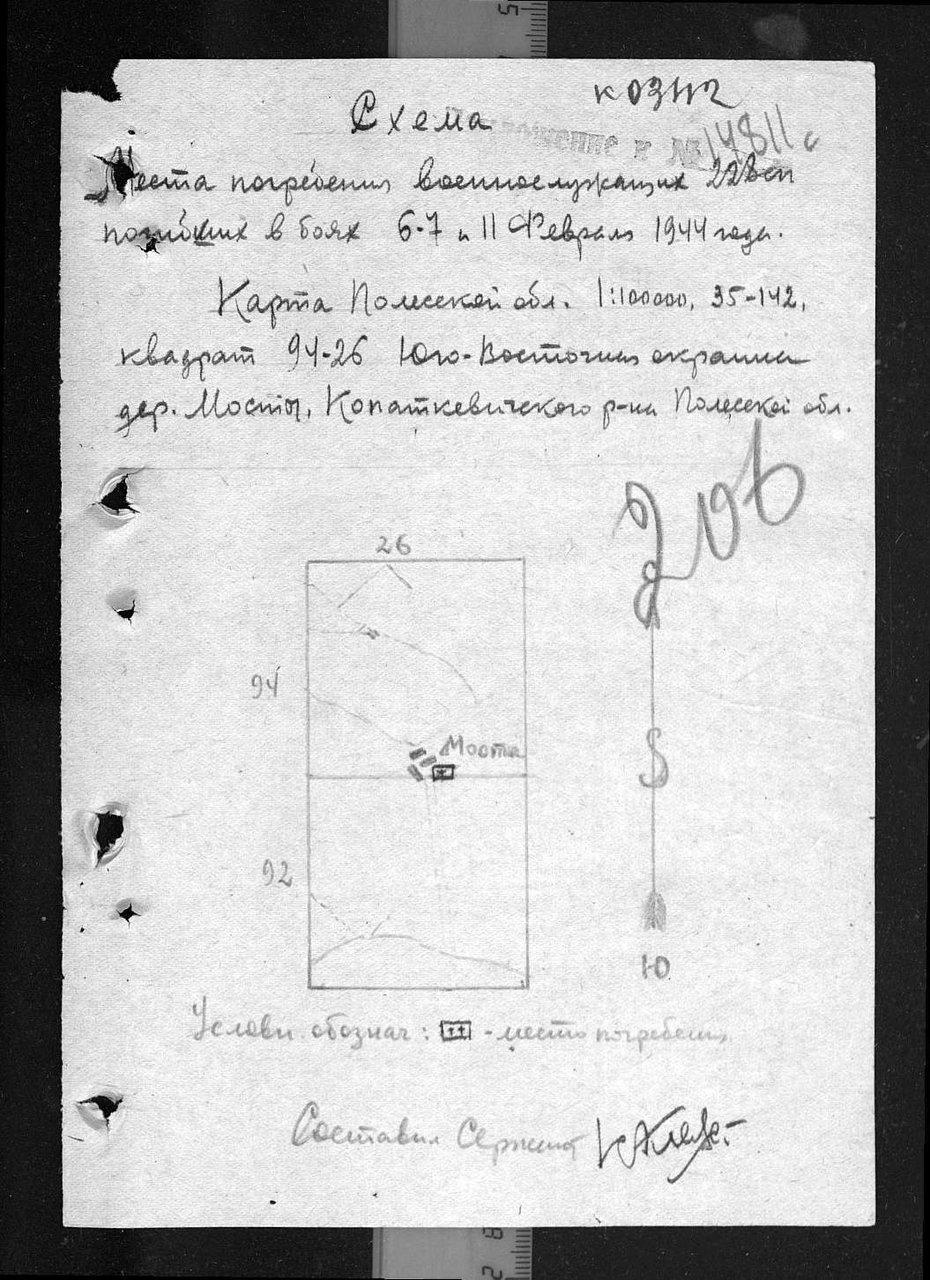 Схема
14811с
Места погребения военнослужащих 228 сп
погибших в боях 6-7 и 11 Февраля 1944 года.
Карта Полесской обл. 1:100000, 35-142,
квадрат 94-26 Юго-Восточная окраина
дер. Мосты, Копаткевичского р-на Полесской обл.
26
94
Мосты
92
Ю
Условн. обознач: - место погребения
Составил Сержант